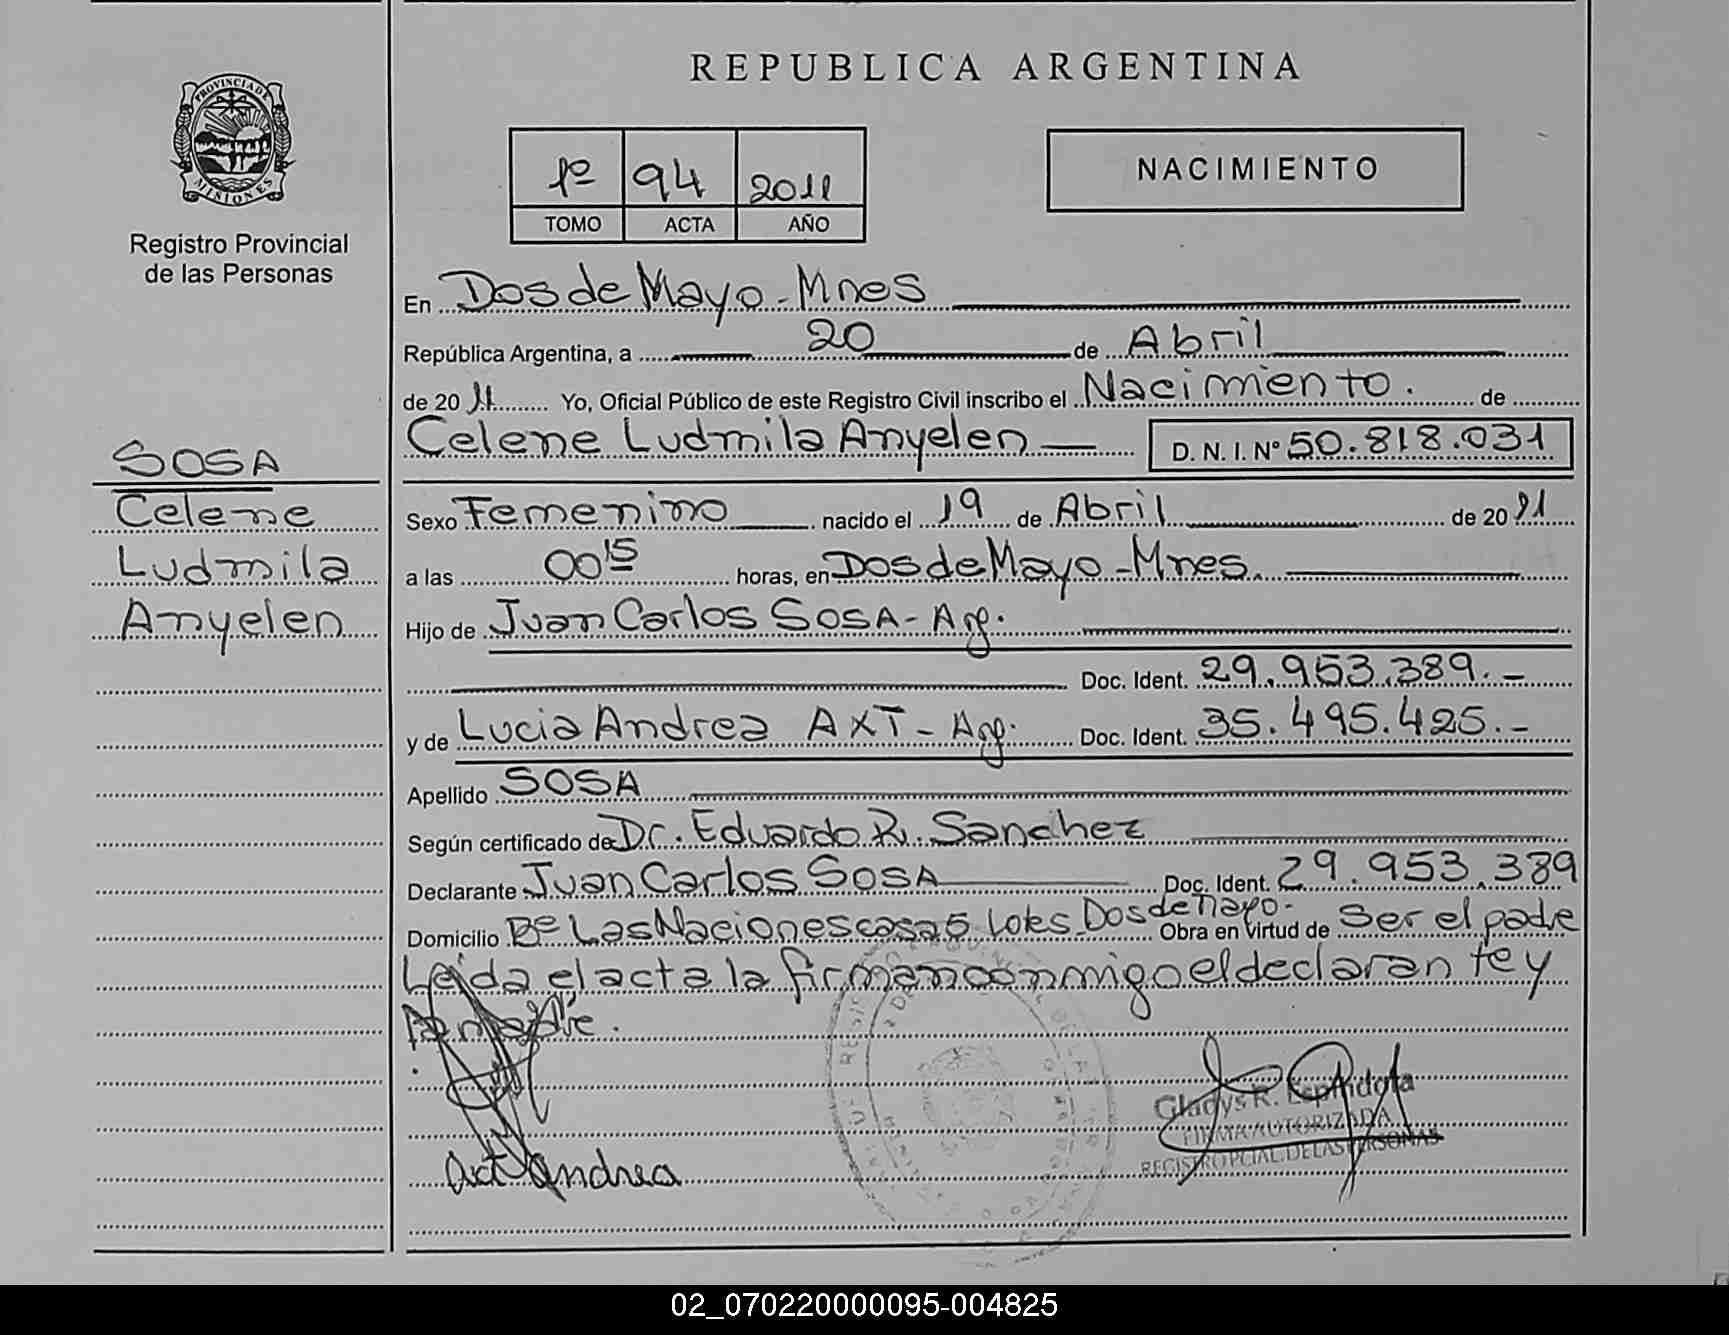 REPUBLICA ARGENTINA
PROVINCIA DE
MISIONES
Registro Provincial
de las Personas
1º 94 2011
TOMO ACTA AÑO
NACIMIENTO
En Dos de Mayo - Mnes
República Argentina, a 20 de Abril
de 20 11 Yo, Oficial Público de este Registro Civil inscribo el Nacimiento. de
Celene Ludmila Anyelen D. N. I. Nº 50.818.031
SOSA
Celene
Ludmila
Anyelen
Sexo Femenino nacido el 19 de Abril de 20 11
a las 00 15 horas, en Dos de Mayo - Mnes.
Hijo de Juan Carlos SOSA - Arg.
Doc. Ident. 29.953.389.-
y de Lucia Andrea AXT - Arg. Doc. Ident. 35.495.425.-
Apellido SOSA
Según certificado de Dr. Eduardo R. Sanchez
Declarante Juan Carlos SOSA Doc. Ident. 29.953.389
Domicilio Bº Las Naciones casa 5 Lotes Dos de Mayo.- Obra en Virtud de Ser el padre
Leida el acta la firman conmigo el declarante y
la madre.
Gladys R. Espindola
FIRMA AUTORIZADA
REGISTRO PCIAL. DE LAS PERSONAS
Axt Andrea
02_070220000095-004825